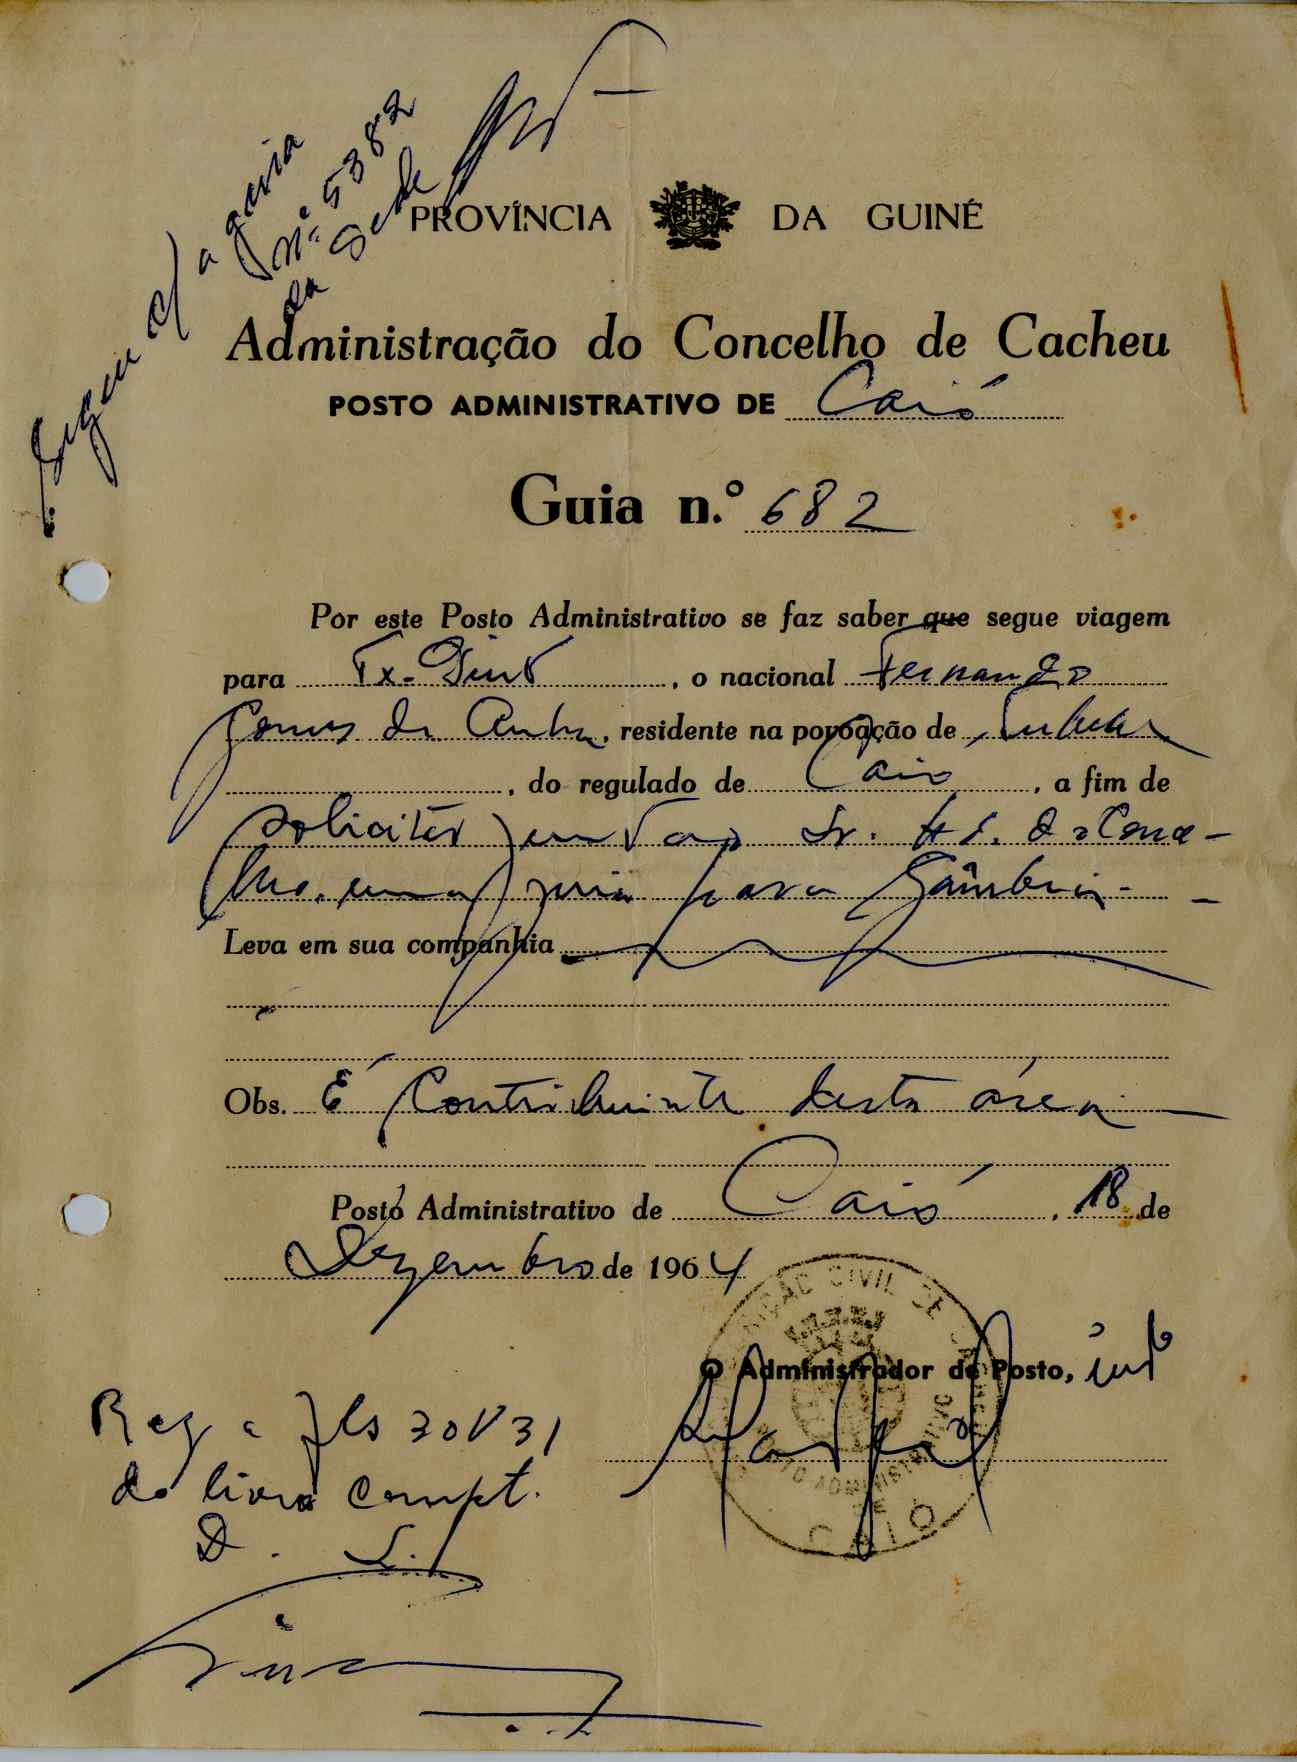 Seguiu c/ a guia
n.º 5382
da Sede
PROVÍNCIA DA GUINÉ
Administração do Concelho de Cacheu
POSTO ADMINISTRATIVO DE Caió
Guia n.º 682
Por este Posto Administrativo se faz saber que segue viagem
para Tx. Pint, o nacional Fernando
Gomes da, residente na povoação de
, do regulado de Caió, a fim de
solicitar junto ao Sr. Ad. do Conce-
lho, uma guia para Gâmbia -
Leva em sua companhia
Obs. É Contribuinte desta área
Posto Administrativo de Caió, 18 de
Dezembro de 1964
O Administrador de Posto, intº
CIVIL DE
POSTO ADMINISTRATIVO
DE
CAIÓ
Reg a fls 30V31
do livro compt.
D. S.